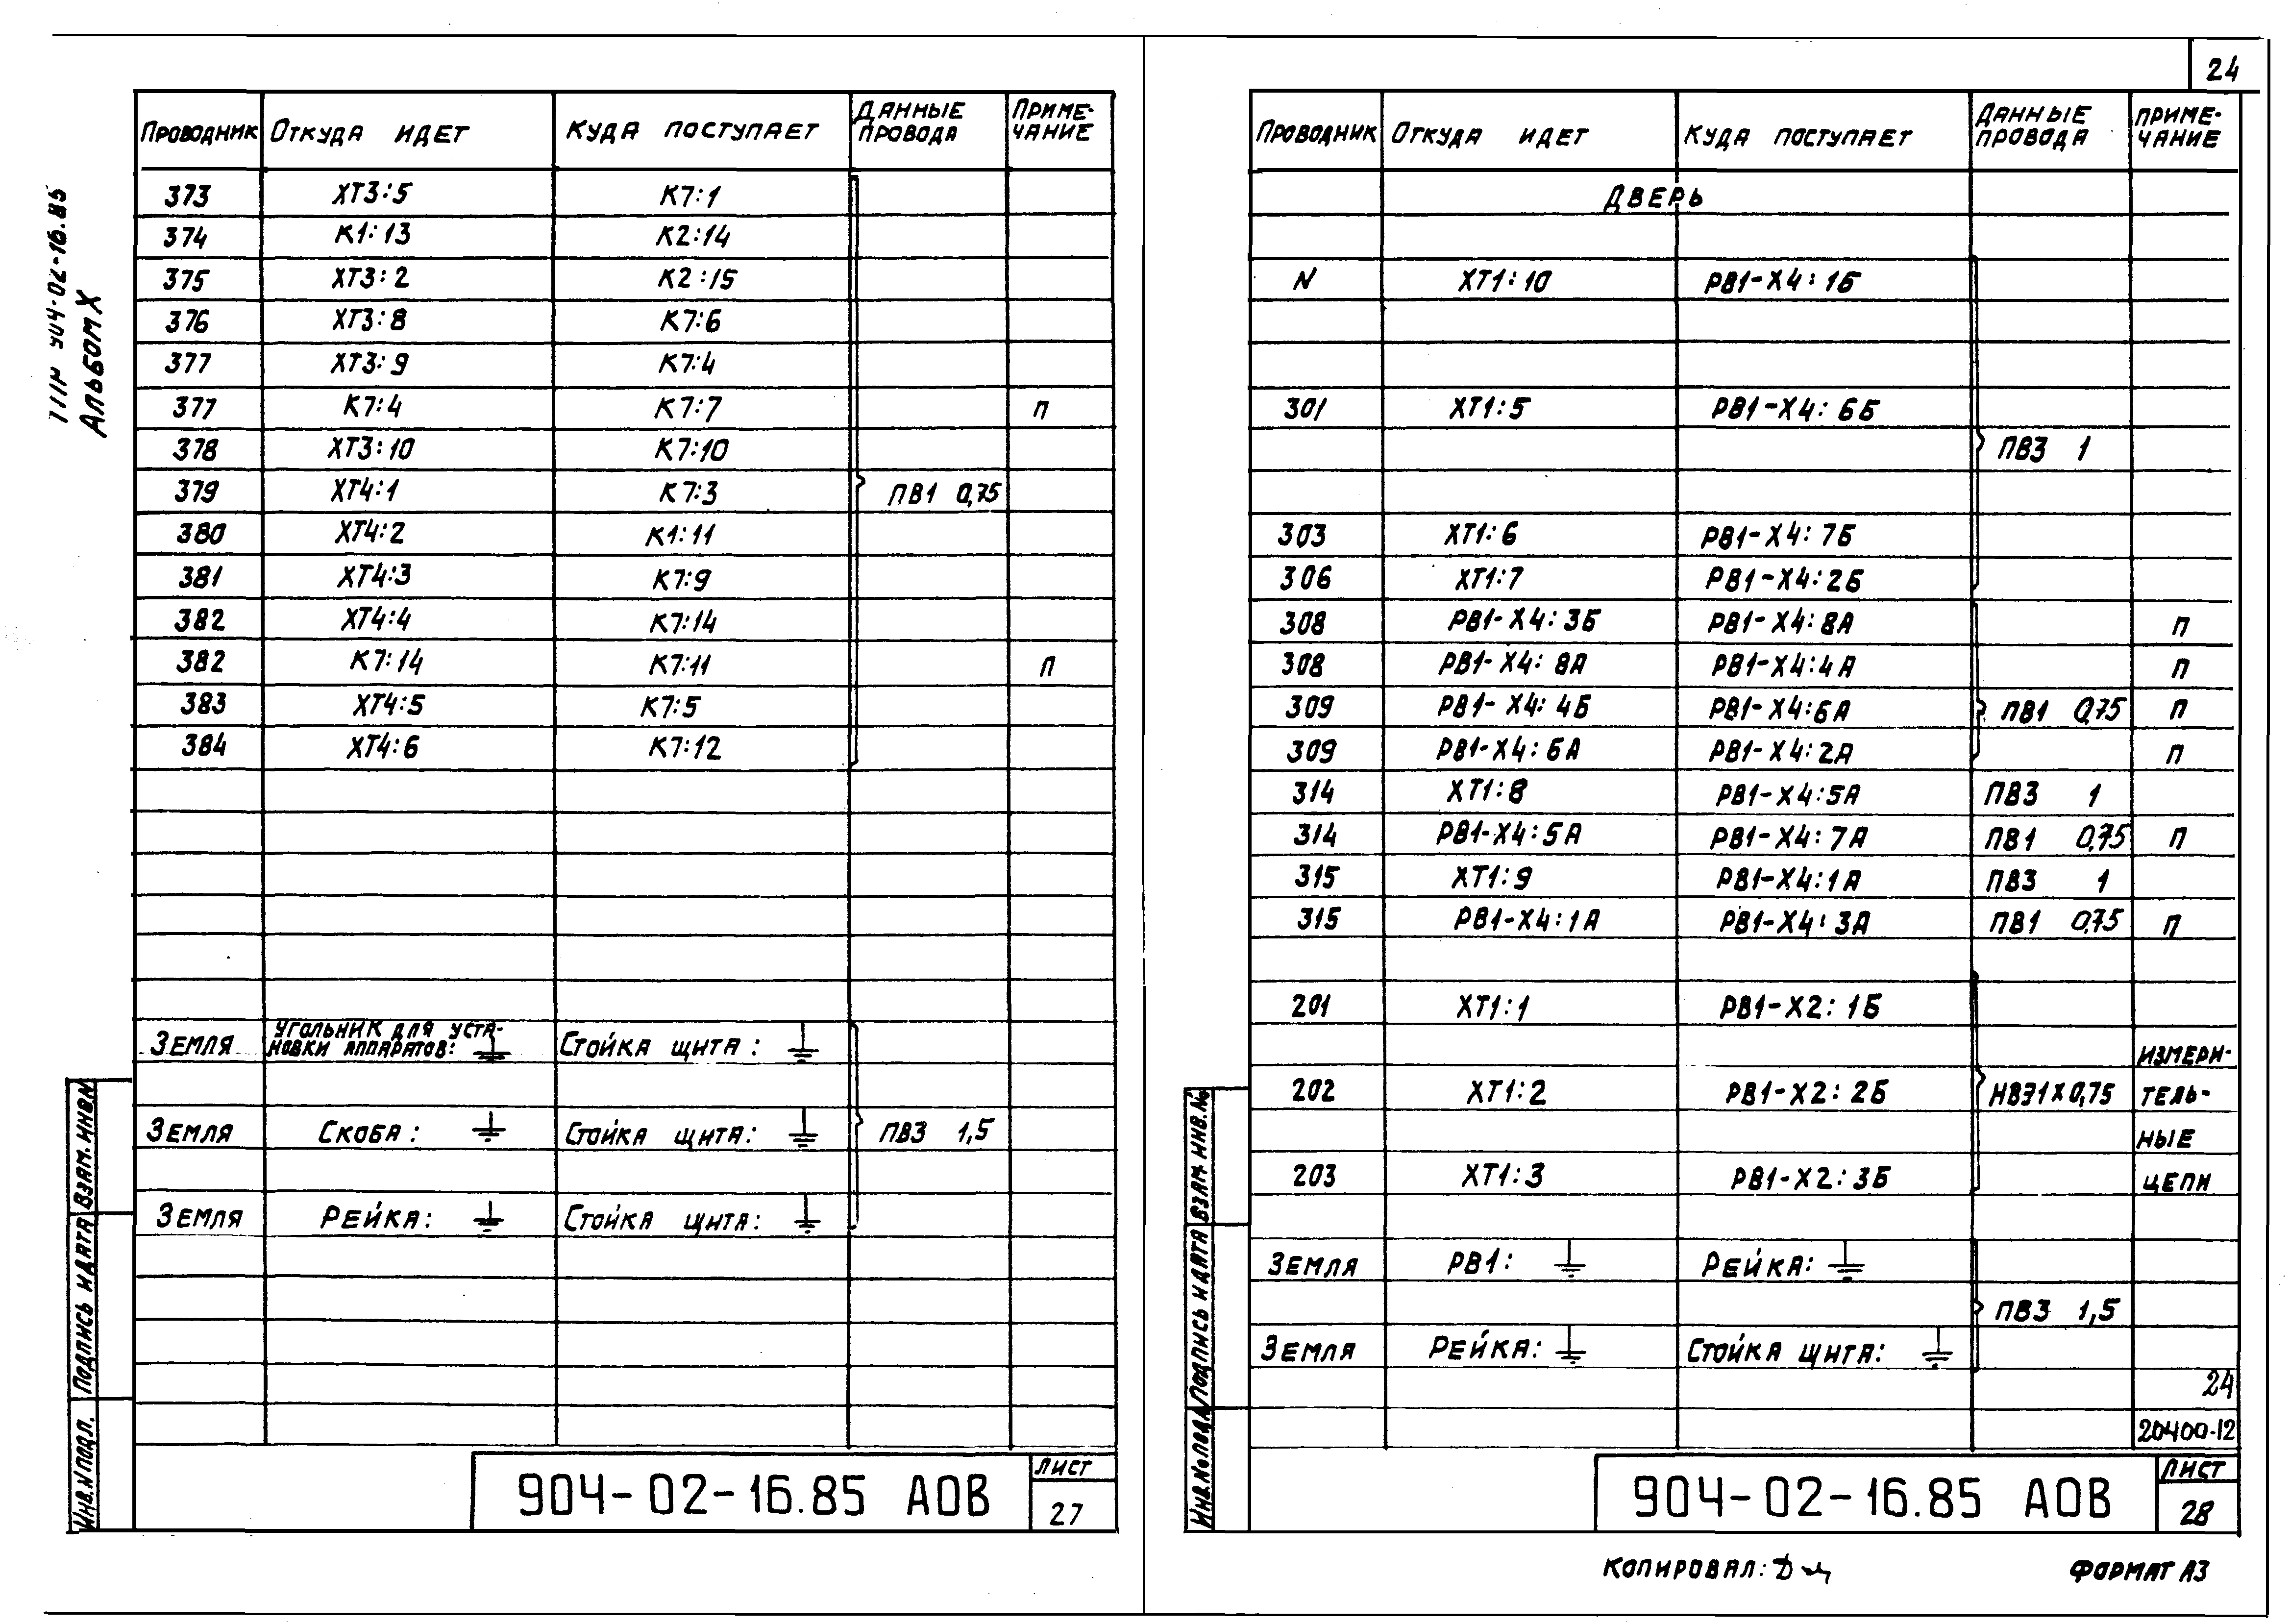 ТПР 904-02-16.85
Альбом X
Проводник Откуда идет Куда поступает Данные провода Приме-чание
373 ХТ3:5 К7:1
374 К1:13 К2:14
375 ХТ3:2 К2:15
376 ХТ3:8 К7:6
377 ХТ3:9 К7:4
377 К7:4 К7:7 П
378 ХТ3:10 К7:10
379 ХТ4:1 К7:3 ПВ1 0,75
380 ХТ4:2 К1:11
381 ХТ4:3 К7:9
382 ХТ4:4 К7:14
382 К7:14 К7:11 П
383 ХТ4:5 К7:5
384 ХТ4:6 К7:12
Земля Угольник для уста-новки аппаратов: Стойка щита:
Земля Скоба: Стойка щита: ПВ3 1,5
Земля Рейка: Стойка щита:
Инв.N подл. Подпись и дата Взам. инв.N
904-02-16.85 АОВ
Лист
27
24
Проводник Откуда идет Куда поступает Данные провода Приме-чание
Дверь
N ХТ1:10 РВ1-Х4:1Б
301 ХТ1:5 РВ1-Х4:6Б
ПВ3 1
303 ХТ1:6 РВ1-Х4:7Б
306 ХТ1:7 РВ1-Х4:2Б
308 РВ1-Х4:3Б РВ1-Х4:8А П
308 РВ1-Х4:8А РВ1-Х4:4А П
309 РВ1-Х4:4Б РВ1-Х4:6А ПВ1 0,75 П
309 РВ1-Х4:6А РВ1-Х4:2А П
314 ХТ1:8 РВ1-Х4:5А ПВ3 1
314 РВ1-Х4:5А РВ1-Х4:7А ПВ1 0,75 П
315 ХТ1:9 РВ1-Х4:1А ПВ3 1
315 РВ1-Х4:1А РВ1-Х4:3А ПВ1 0,75 П
201 ХТ1:1 РВ1-Х2:1Б
Измери-
202 ХТ1:2 РВ1-Х2:2Б НВЭ1х0,75 тель-
ные
203 ХТ1:3 РВ1-Х2:3Б цепи
Земля РВ1: Рейка:
ПВ3 1,5
Земля Рейка: Стойка щита:
24
20400-12
Инв.№ подл. Подпись и дата Взам. инв.№
904-02-16.85 АОВ
Лист
28
Копировал:
Формат А3